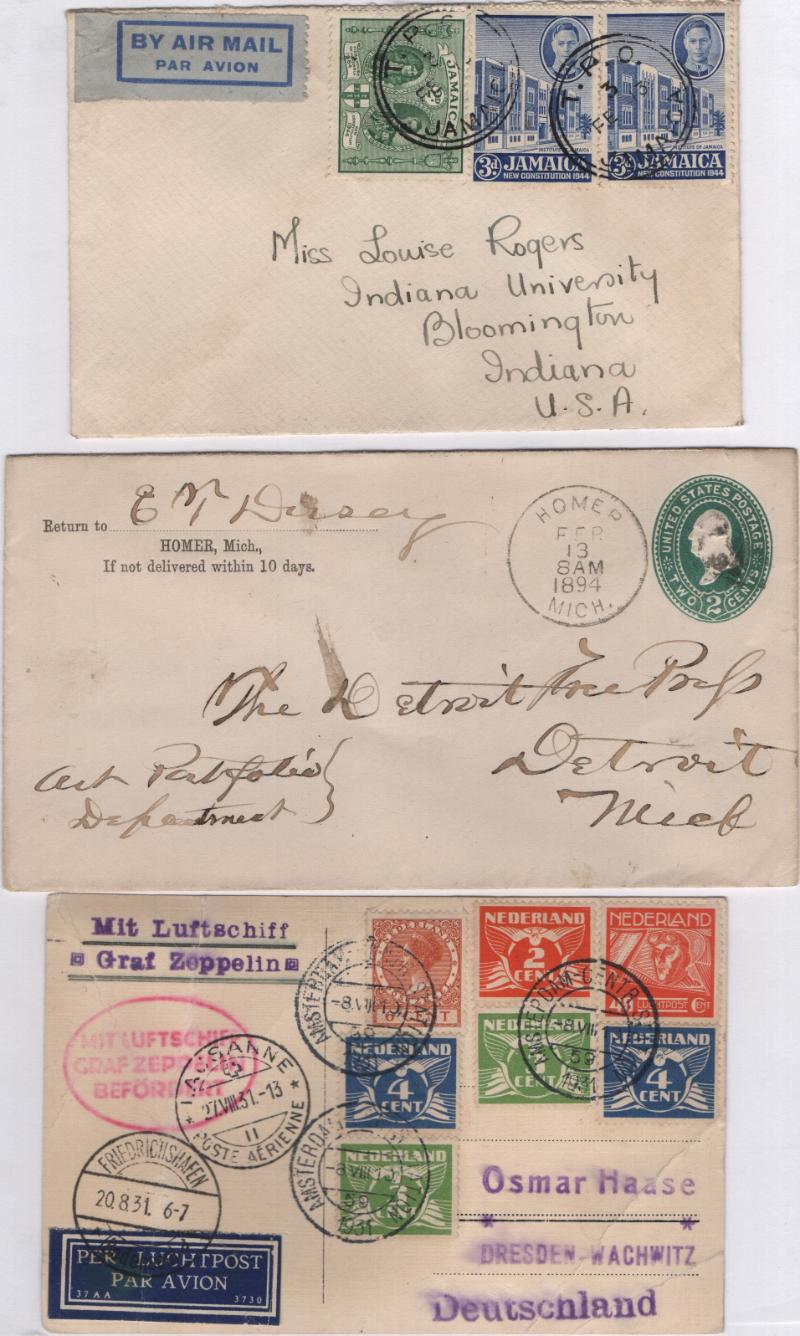 BY AIR MAIL
PAR AVION
JAMAICA
T. P. O.
JAMAICA
T. P. O.
3
FE 13
JAMAICA
INSTITUTE OF JAMAICA
3d JAMAICA
NEW CONSTITUTION 1944
INSTITUTE OF JAMAICA
3d JAMAICA
NEW CONSTITUTION 1944
Miss Louise Rogers
Indiana University
Bloomington
Indiana
U.S.A.
Return to
HOMER, Mich.,
If not delivered within 10 days.
HOMER
FEB
13
8AM
1894
MICH.
UNITED STATES POSTAGE
TWO 2 CENTS
The Detroit Free Press
Detroit
Mich
Art Portfolio
Department
Mit Luftschiff
Graf Zeppelin
MIT LUFTSCHIFF
GRAF ZEPPELIN
BEFÖRDERT
LAUSANNE
27.VIII.31.-13
11
POSTE AÉRIENNE
FRIEDRICHSHAFEN
20.8.31. 6-7
PER LUCHTPOST
PAR AVION
37AA 3730
NEDERLAND
2
CENT
NEDERLAND
40 LUCHTPOST CENT
NEDERLAND
4
CENT
NEDERLAND
CENT
NEDERLAND
4
CENT
AMSTERDAM-CENTR.STATION
-8.VIII
59
1931
AMSTERDAM
-8.VIII
59
1931
Osmar Haase
DRESDEN-WACHWITZ
Deutschland